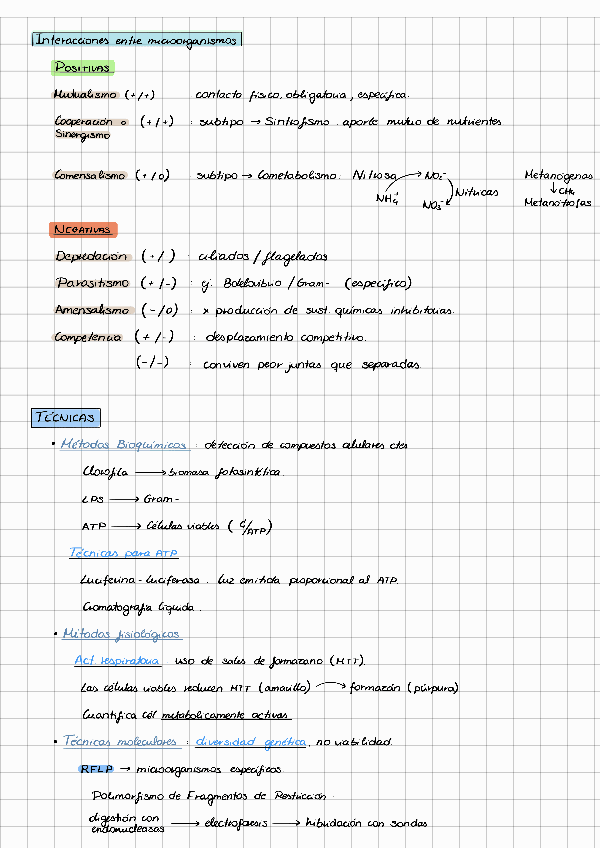 Interacciones entre microorganismos
POSITIVAS
Mutualismo (+/+) contacto físico, obligatoria, específica.
Cooperación o (+/+) : subtipo → Sintrofismo. aporte mutuo de nutrientes
Sinergismo
Comensalismo (+/0) : subtipo → Cometabolismo: Nitrosa NO₂⁻ Metanógenas
NH₄⁺ Nitricas ↓CH₄
NO₃⁻ Metanótrofas
NEGATIVAS
Depredación (+/ ) : ciliados / flagelados
Parasitismo (+/-) : ej. Bdellovibrio / Gram- (específico)
Amensalismo (-/0) : x producción de sust. químicas inhibitorias.
Competencia (+/-) : desplazamiento competitivo.
(-/-) : conviven peor juntas que separadas
TÉCNICAS
• Métodos Bioquímicos : detección de compuestos celulares ctes
Clorofila → biomasa fotosintética.
LPS → Gram-
ATP → Células viables ( C/ATP)
Técnicas para ATP
Luciferina - luciferasa . luz emitida proporcional al ATP.
Cromatografía líquida .
• Métodos fisiológicos
Act. respiratoria uso de sales de formazano (MTT).
Las células viables reducen MTT (amarillo) → formazán (púrpura)
Cuantifica cél metabolicamente activas
• Técnicas moleculares : diversidad genética, no viabilidad.
RFLP → microorganismos específicos
Polimorfismo de Fragmentos de Restricción
digestión con → electroforesis → hibridación con sondas
endonucleasas